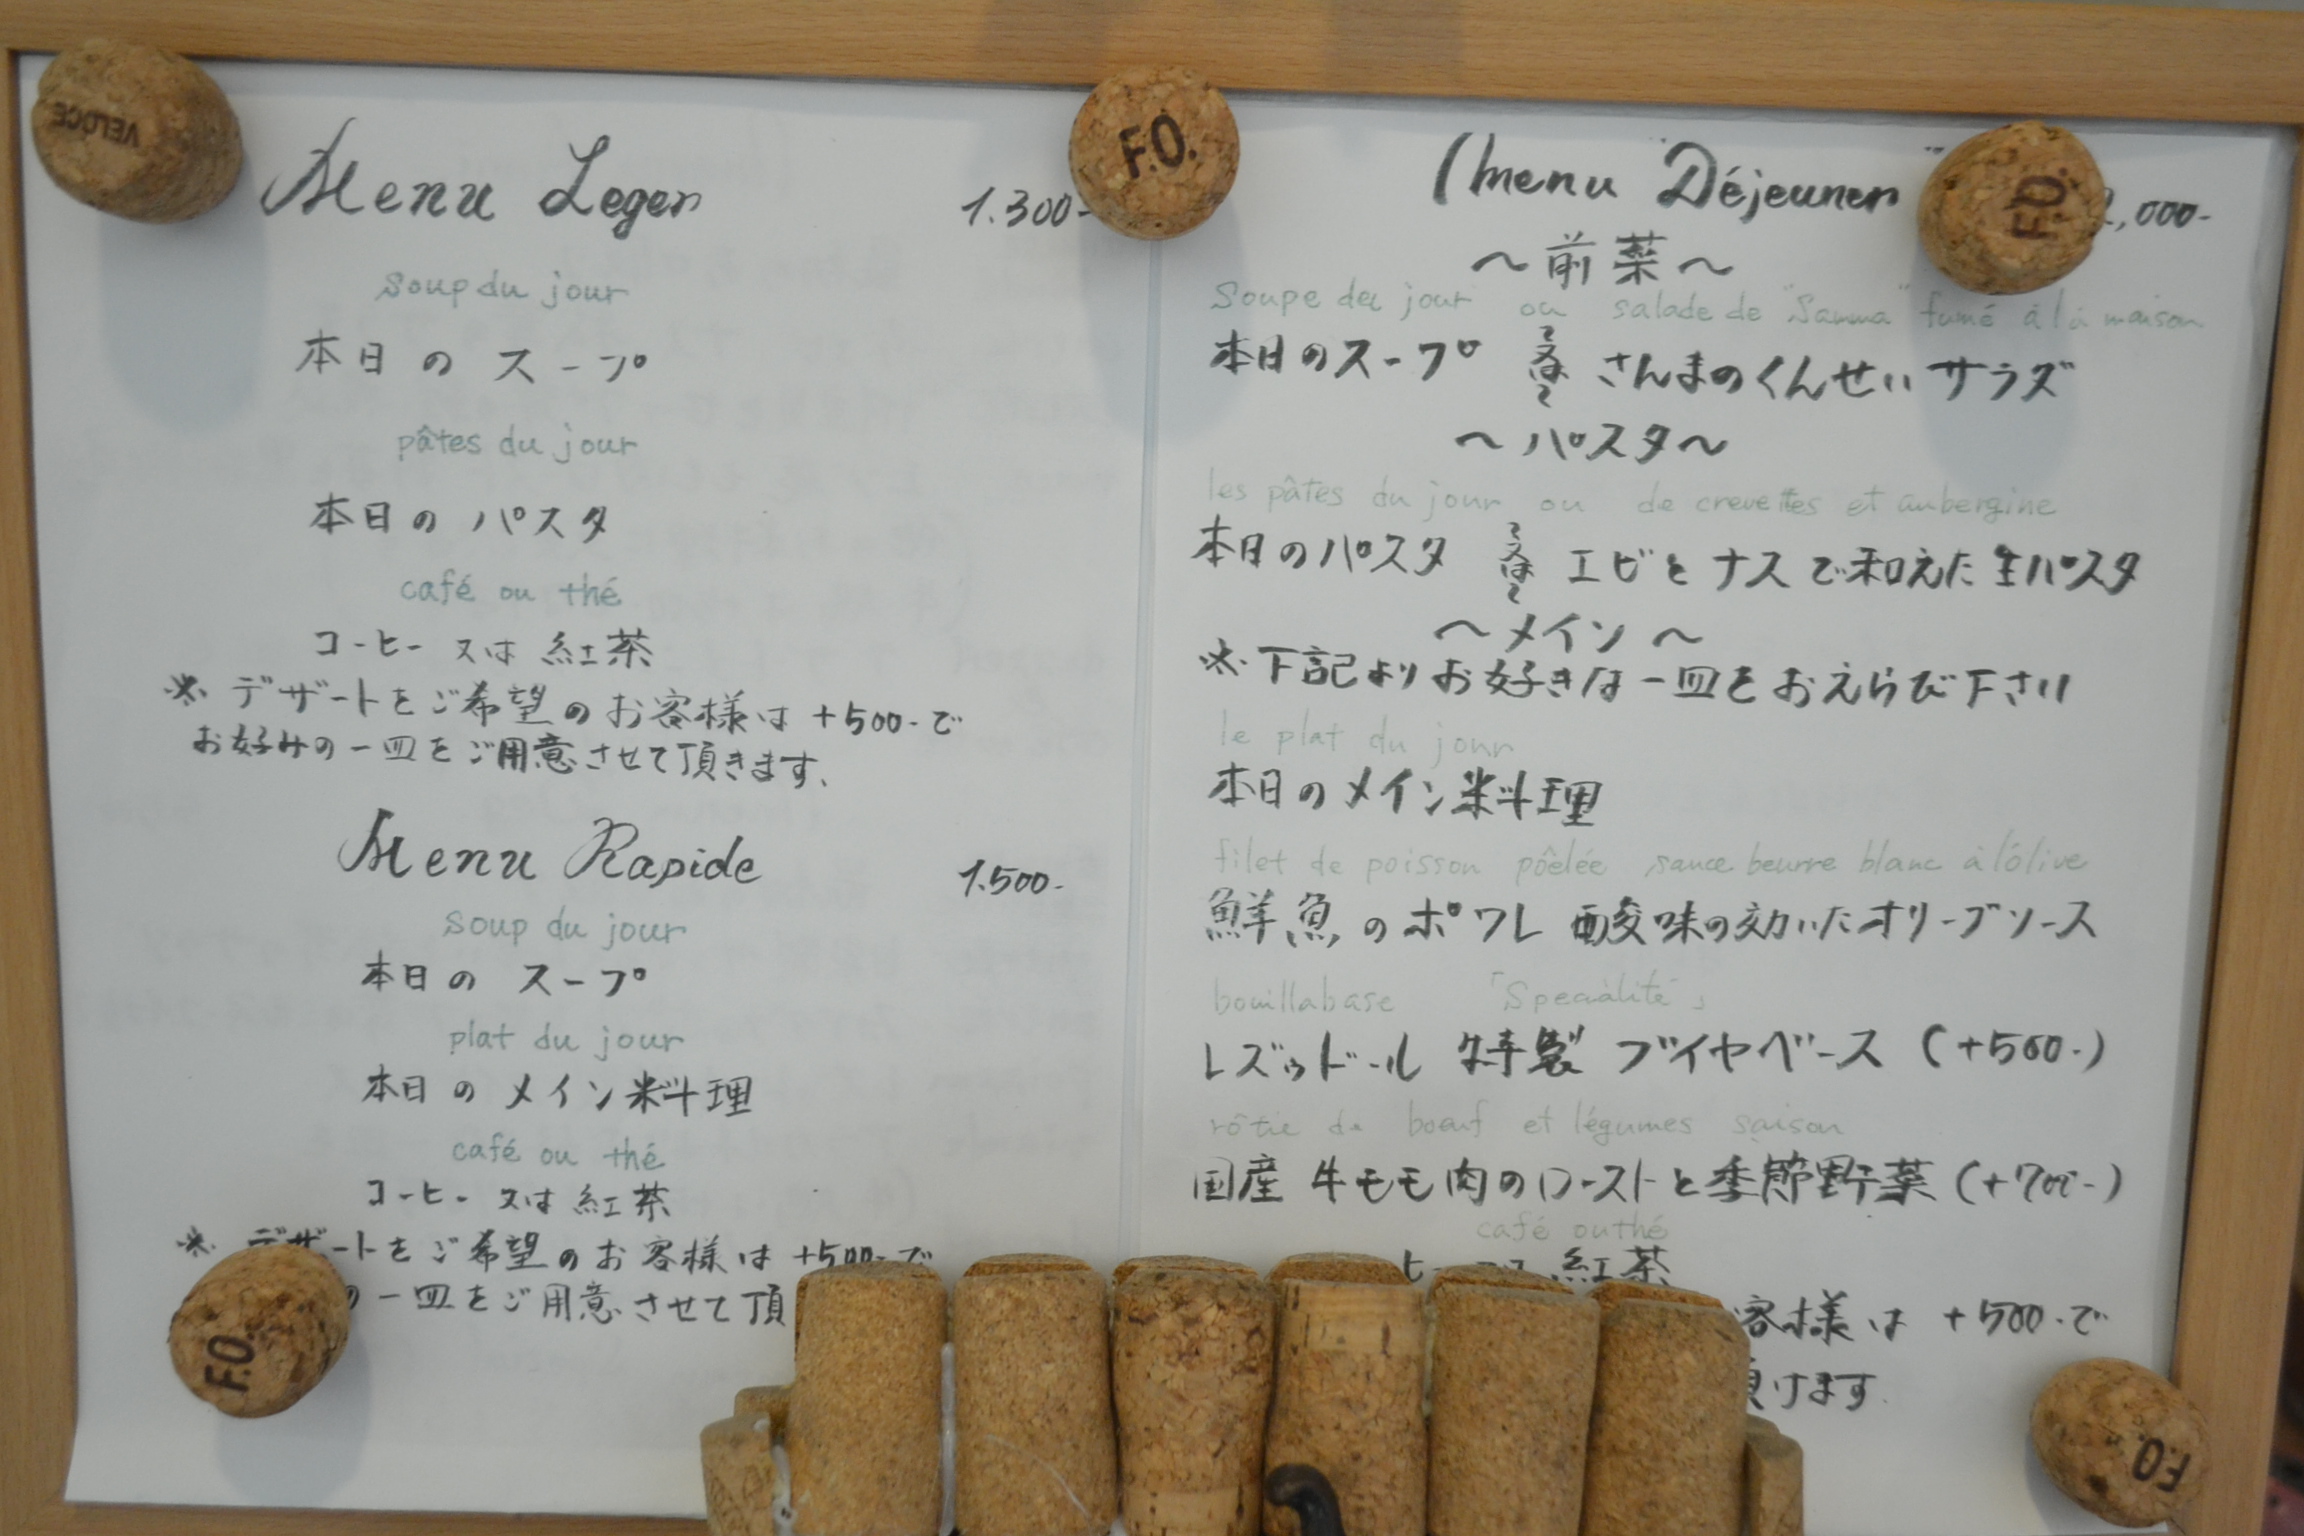 VELOCE
F.O.
F.O.
Menu Leger 1.300-
soup du jour
本日の スープ
pâtes du jour
本日の パスタ
café ou thé
コーヒー 又は 紅茶
※ デザートをご希望のお客様は +500-で
お好みの一皿をご用意させて頂きます.
Menu Rapide 1.500-
soup du jour
本日の スープ
plat du jour
本日の メイン料理
café ou thé
コーヒー 又は 紅茶
※ デザートをご希望のお客様は +500-で
の一皿をご用意させて頂
F.O.
menu "Déjeuner" ,000-
～前菜～
Soupe du jour ou salade de "Sanma" fumé à la maison
本日のスープ 又は さんまのくんせいサラダ
～パスタ～
les pâtes du jour ou de crevettes et aubergine
本日のパスタ 又は エビとナスで和えた生パスタ
～メイン～
※下記よりお好きな一皿をおえらび下さい
le plat du jour
本日のメイン料理
filet de poisson pôêlée sauce beurre blanc à l'ôlive
鮮魚のポワレ 酸味の効いたオリーブソース
bouillabase 「Specialité」
レズゥドール 特製 ブイヤベース (+500-)
rôtie de boeuf et légumes saison
国産 牛モモ肉のローストと季節野菜 (+700-)
café ou thé
紅茶
客様は +500-で
頂けます.
F.O.